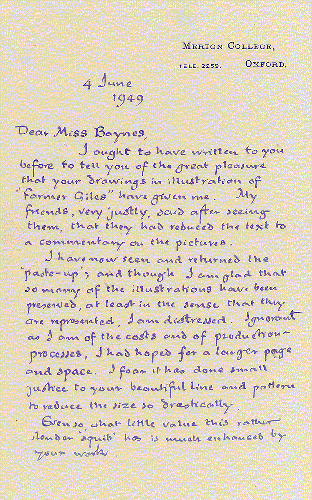 MERTON COLLEGE,
TELE. 2259. OXFORD.
4 June
1949
Dear Miss Baynes,
I ought to have written to you
before to tell you of the great pleasure
that your drawings in illustration of
"Farmer Giles" have given me. My
friends, very justly, said after seeing
them, that they had reduced the text to
a commentary on the pictures.
I have now seen and returned the
'paste-up'; and though I am glad that
so many of the illustrations have been
preserved, at least in the sense that they
are represented, I am distressed. Ignorant
as I am of the costs and of production-
processes, I had hoped for a larger page
and space. I fear it has done small
justice to your beautiful line and pattern
to reduce the size so drastically.
Even so, what little value this rather
slender 'squib' has is much enhanced by
your work